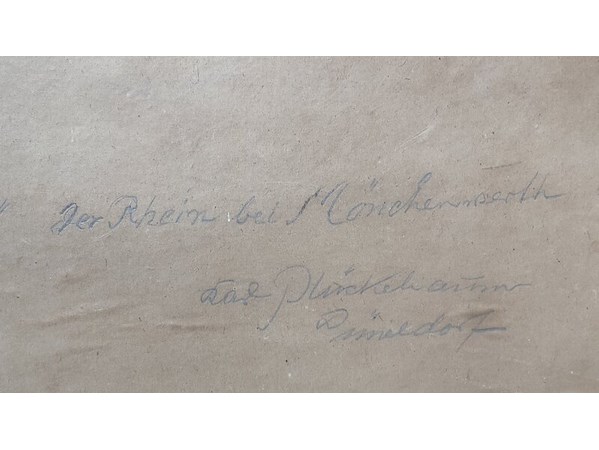 Der Rhein bei Mönchenwerth
Plückebaum
Düsseldorf